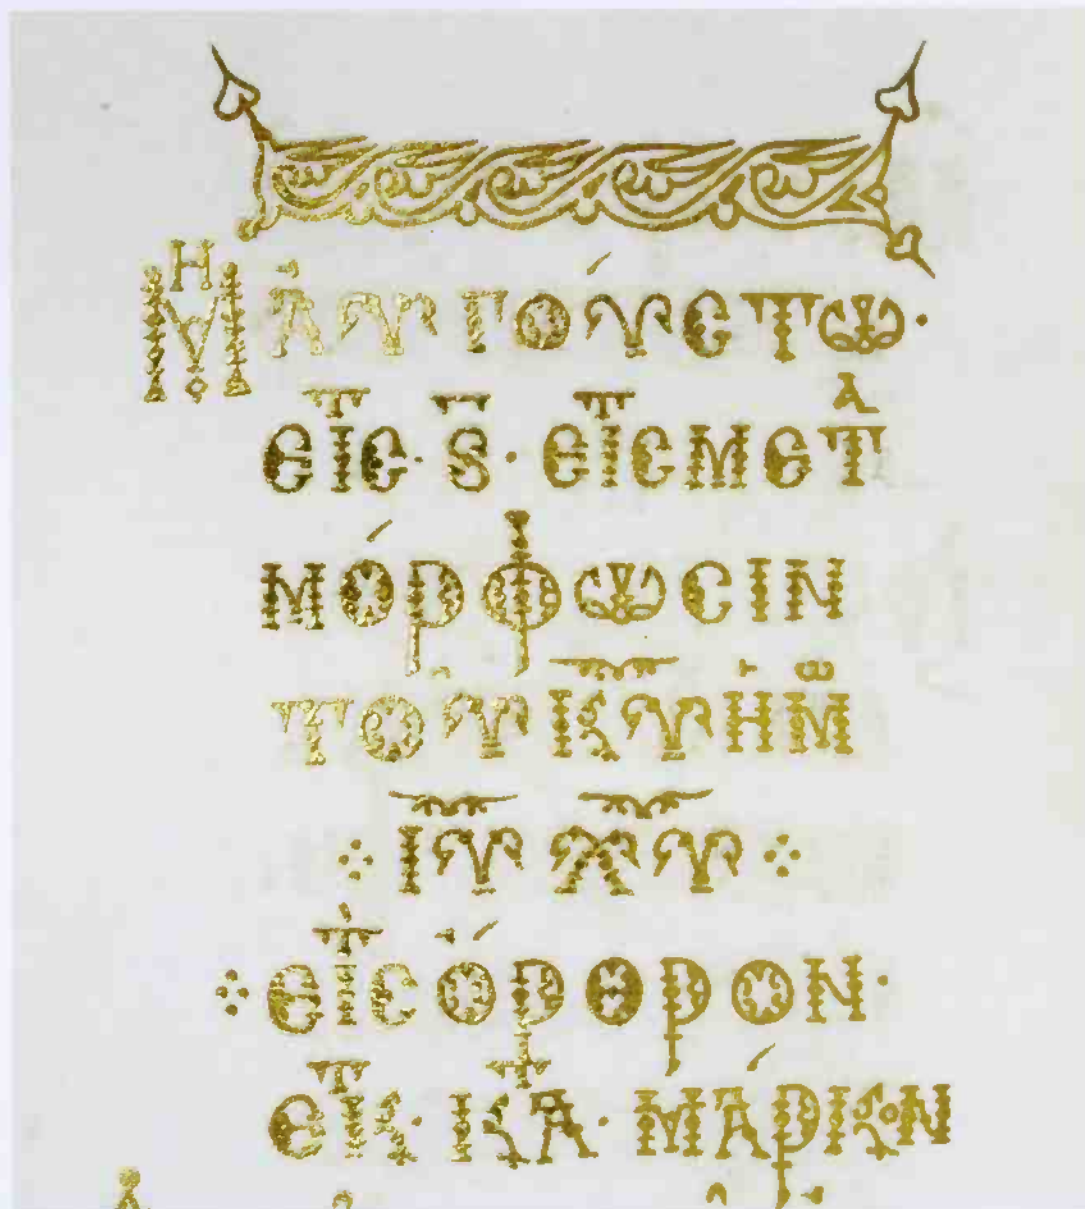 ΜΗ ἈΥΓΟΎϹΤΩ·
ΕΙϹ· Ϛ̅· ΕΙϹ ΜΕΤᾺ
ΜΌΡΦΩϹΙΝ
ΤΟΥ͂ Κ̅Υ̅ ἩΜΩ
Ι̅Υ̅ Χ̅Υ̅
ΕΙϹ ὌΡΘΡΟΝ·
ΕΚ· ΚΑ· ΜΆΡΚΟΝ